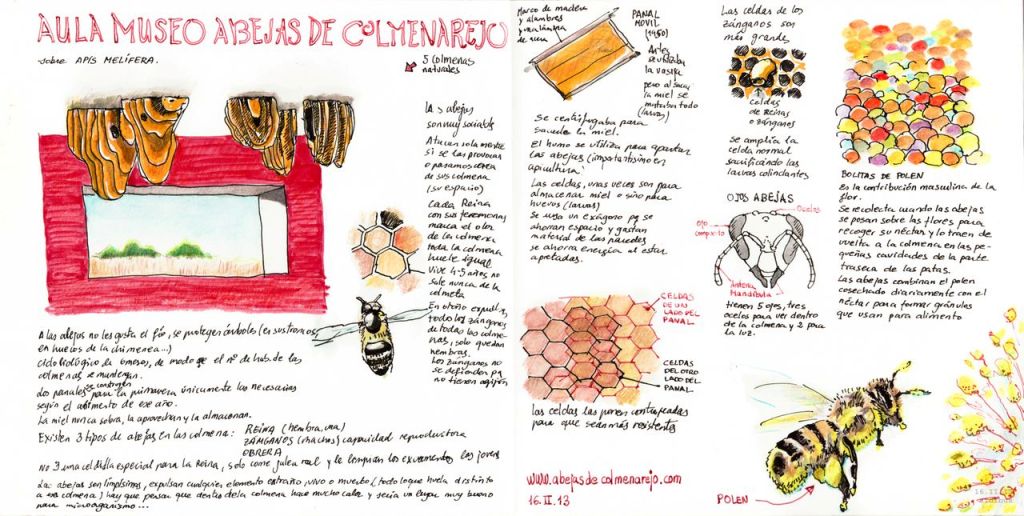 AULA MUSEO ABEJAS DE COLMENAREJO
sobre APIS MELÍFERA.
5 colmenas
naturales
Las abejas
son muy sociables
Atacan si se
si se las provoca
o pasamos cerca
de su colmena
(su espacio)
Cada Reina
con sus feromonas
marca el olor
de la colmena
toda la colmena
huele igual
Vive 4-5 años no
sale nunca de la
colmena
En otoño expulsan
todos los zánganos
de todas las colme-
nas, solo quedan
hembras.
Los zánganos no
se defienden pq
no tienen aguijón
A las abejas no les gusta el frío, se protegen (en sus troncos
en huecos de la chimenea...)
ciclo biológico de 6 meses, de modo que el nº de hab. de las
colmenas se mantengan.
Los panales se construyen para la primavera únicamente los necesarios
según el alimento de ese año.
La miel nunca sobra, la aprovechan y la almacenan.
Existen 3 tipos de abejas en las colmena: REINA (hembra, una)
ZÁNGANOS (machos) capacidad reproductora
OBRERA
una celdilla especial para la Reina, solo come jalea real y le limpian los excrementos las jóvenes
Las abejas son limpísimas, expulsan cualquier elemento extraño, vivo o muerto (todo lo que huela distinto
a su colmena) hay que pensar que dentro de la colmena hace mucho calor y sería un lugar muy bueno
para microorganismos...
Marco de madera
y alambres
y una lámina
de cera
PANAL
MOVIL
(1950)
Antes
se utilizaba
la vasija
pero al sacar
la miel se
mataban todo
(larvas)
Se centrifugaba para
sacar la miel.
El humo se utiliza para apartar
las abejas (importantísimo en
apicultura)
Las celdas, unas veces son para
almacenar miel o sino para
huevos (larvas)
Se usa un exágono pq se
ahorran espacio y gastan
material de las paredes
se ahorra energía al estar
apretadas.
CELDAS
DE UN
LADO DEL
PANAL
CELDAS
DEL OTRO
LADO DEL
PANAL.
las celdas las ponen contrapeadas
para que sean más resistentes
www.abejasdecolmenarejo.com
16.II.13
Las celdas de los
zánganos son
más grandes
celdas
de Reinas
o zánganos
Se amplía la
celda normal
sacrificando las
larvas colindantes
OJOS ABEJAS
Ocelos
Ojo
compuesto
Antena
Mandíbula
tienen 5 ojos, tres
ocelos para ver dentro
de la colmena y 2 para
la luz.
BOLITAS DE POLEN
Es la contribución masculina de la
flor.
Se recolecta cuando las abejas
se posan sobre las flores para
recoger su néctar y lo traen de
vuelta a la colmena en las pe-
queñas cavidades de la parte
trasera de las patas.
Las abejas combinan el polen
cosechado diariamente con el
néctar para formar gránulos
que usan para alimento
POLEN